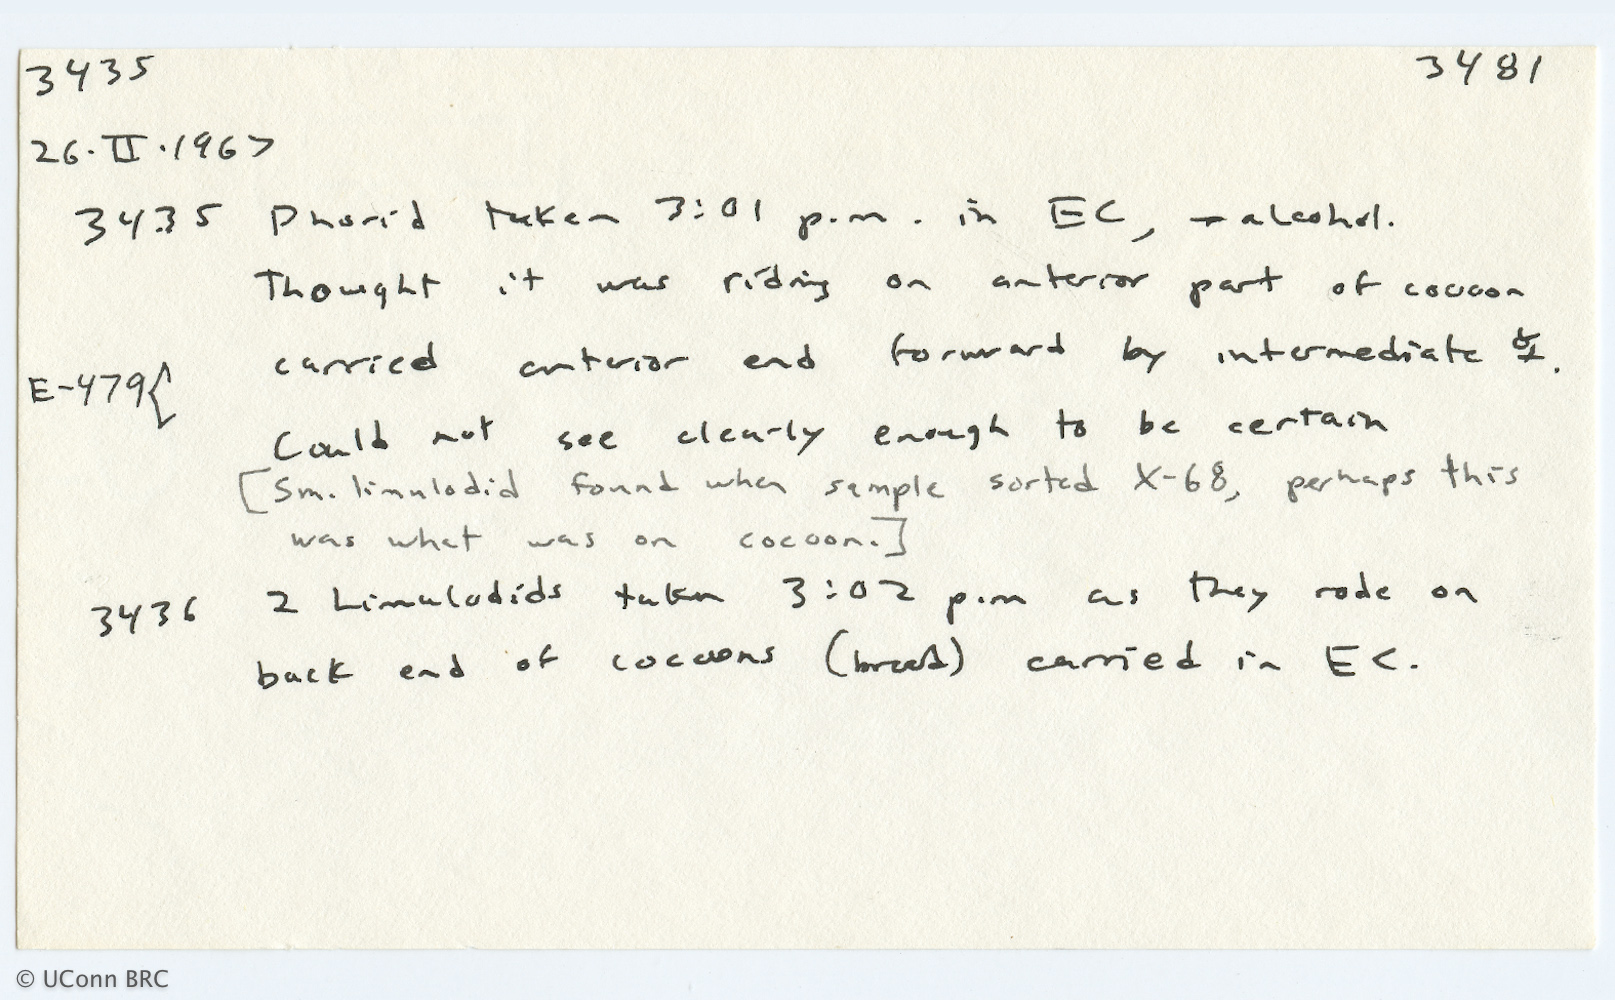 3435 3481
26·II·1967
3435 Phorid taken 3:01 p.m. in EC, → alcohol.
Thought it was riding on anterior part of cocoon
carried anterior end forward by intermediate ☿.
E-479{
Could not see clearly enough to be certain
[Sm. limulodid found when sample sorted X-68, perhaps this
was what was on cocoon.]
3436 2 Limulodids taken 3:02 p.m as they rode on
back end of cocoons (brood) carried in EC.
© UConn BRC